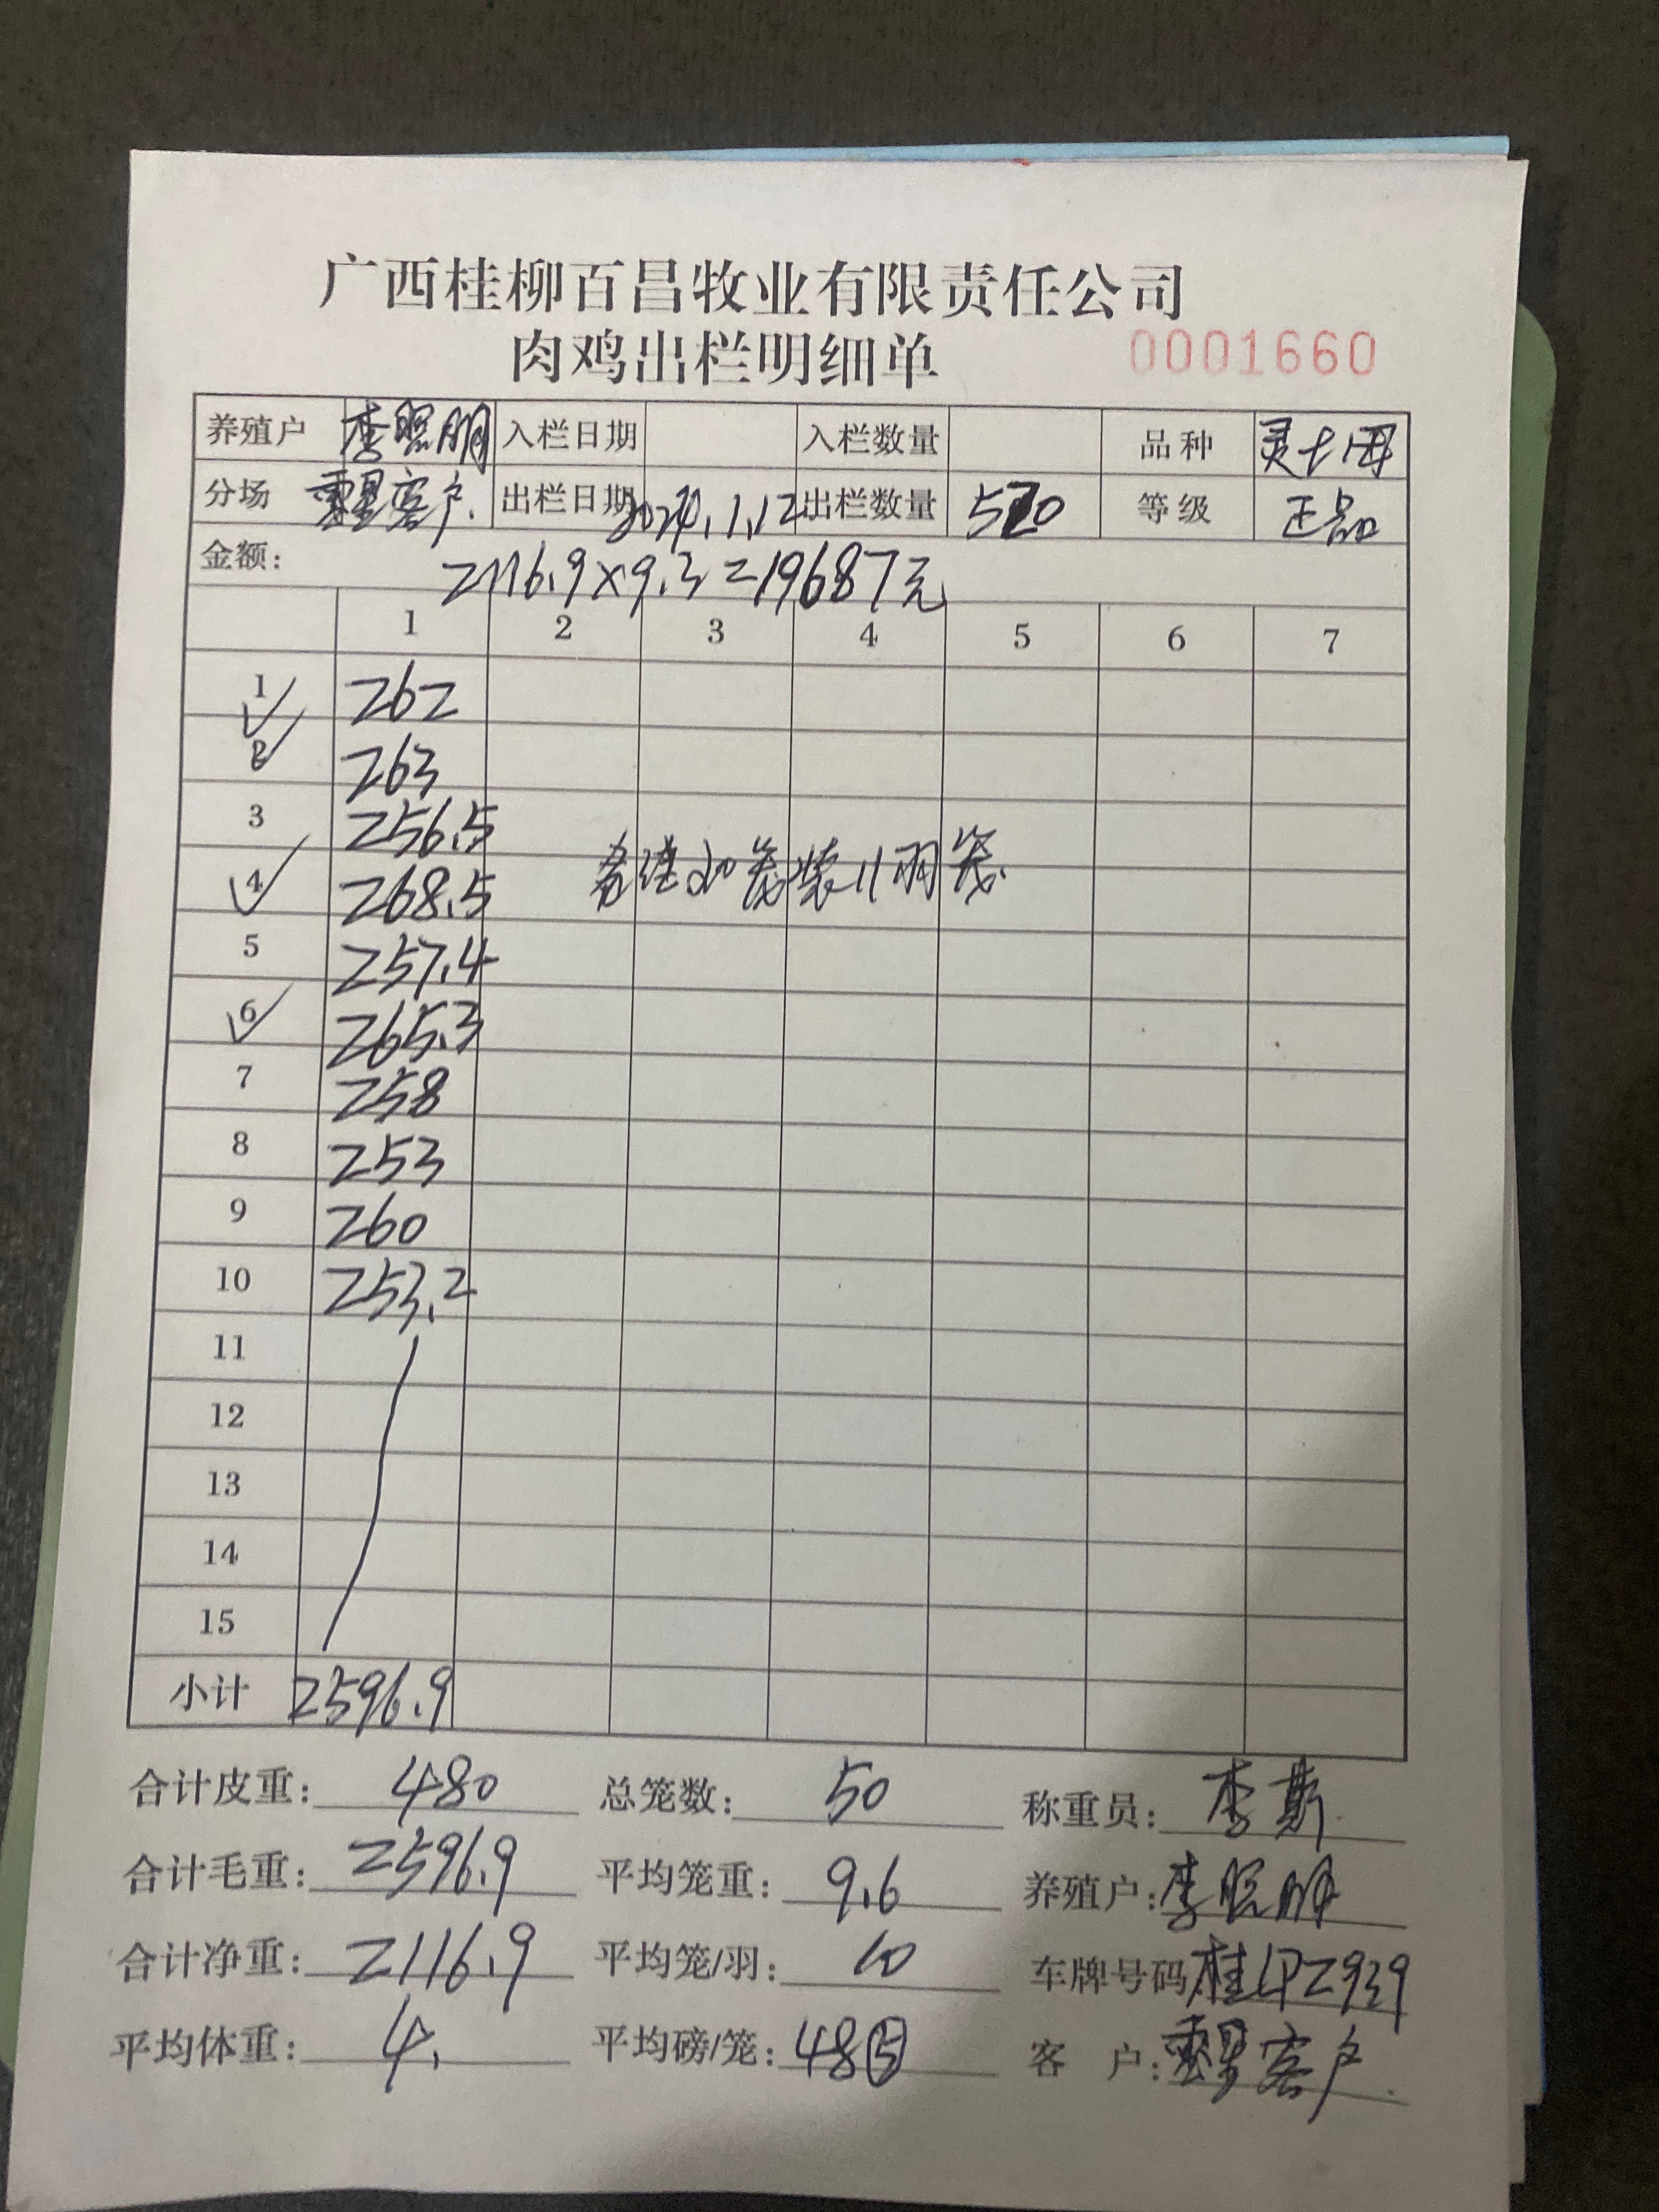 广西桂柳百昌牧业有限责任公司
肉鸡出栏明细单 0001660
养殖户 李聪明 入栏日期 入栏数量 品种
分场 客户. 出栏日期 2024.1.12 出栏数量 520 等级 正品
金额: 2116.9×9.3=19687元
1 2 3 4 5 6 7
1 262
2 263
3 256.5
4 268.5 20笼装11羽笼.
5 257.4
6 265.3
7 258
8 253
9 260
10 253.2
11
12
13
14
15
小计 2596.9
合计皮重: 480 总笼数: 50 称重员: 李
合计毛重: 2596.9 平均笼重: 9.6 养殖户: 李聪明
合计净重: 2116.9 平均笼/羽: 10 车牌号码: 桂LPZ939
平均体重: 4. 平均磅/笼: 48⑤ 客 户: 客户.